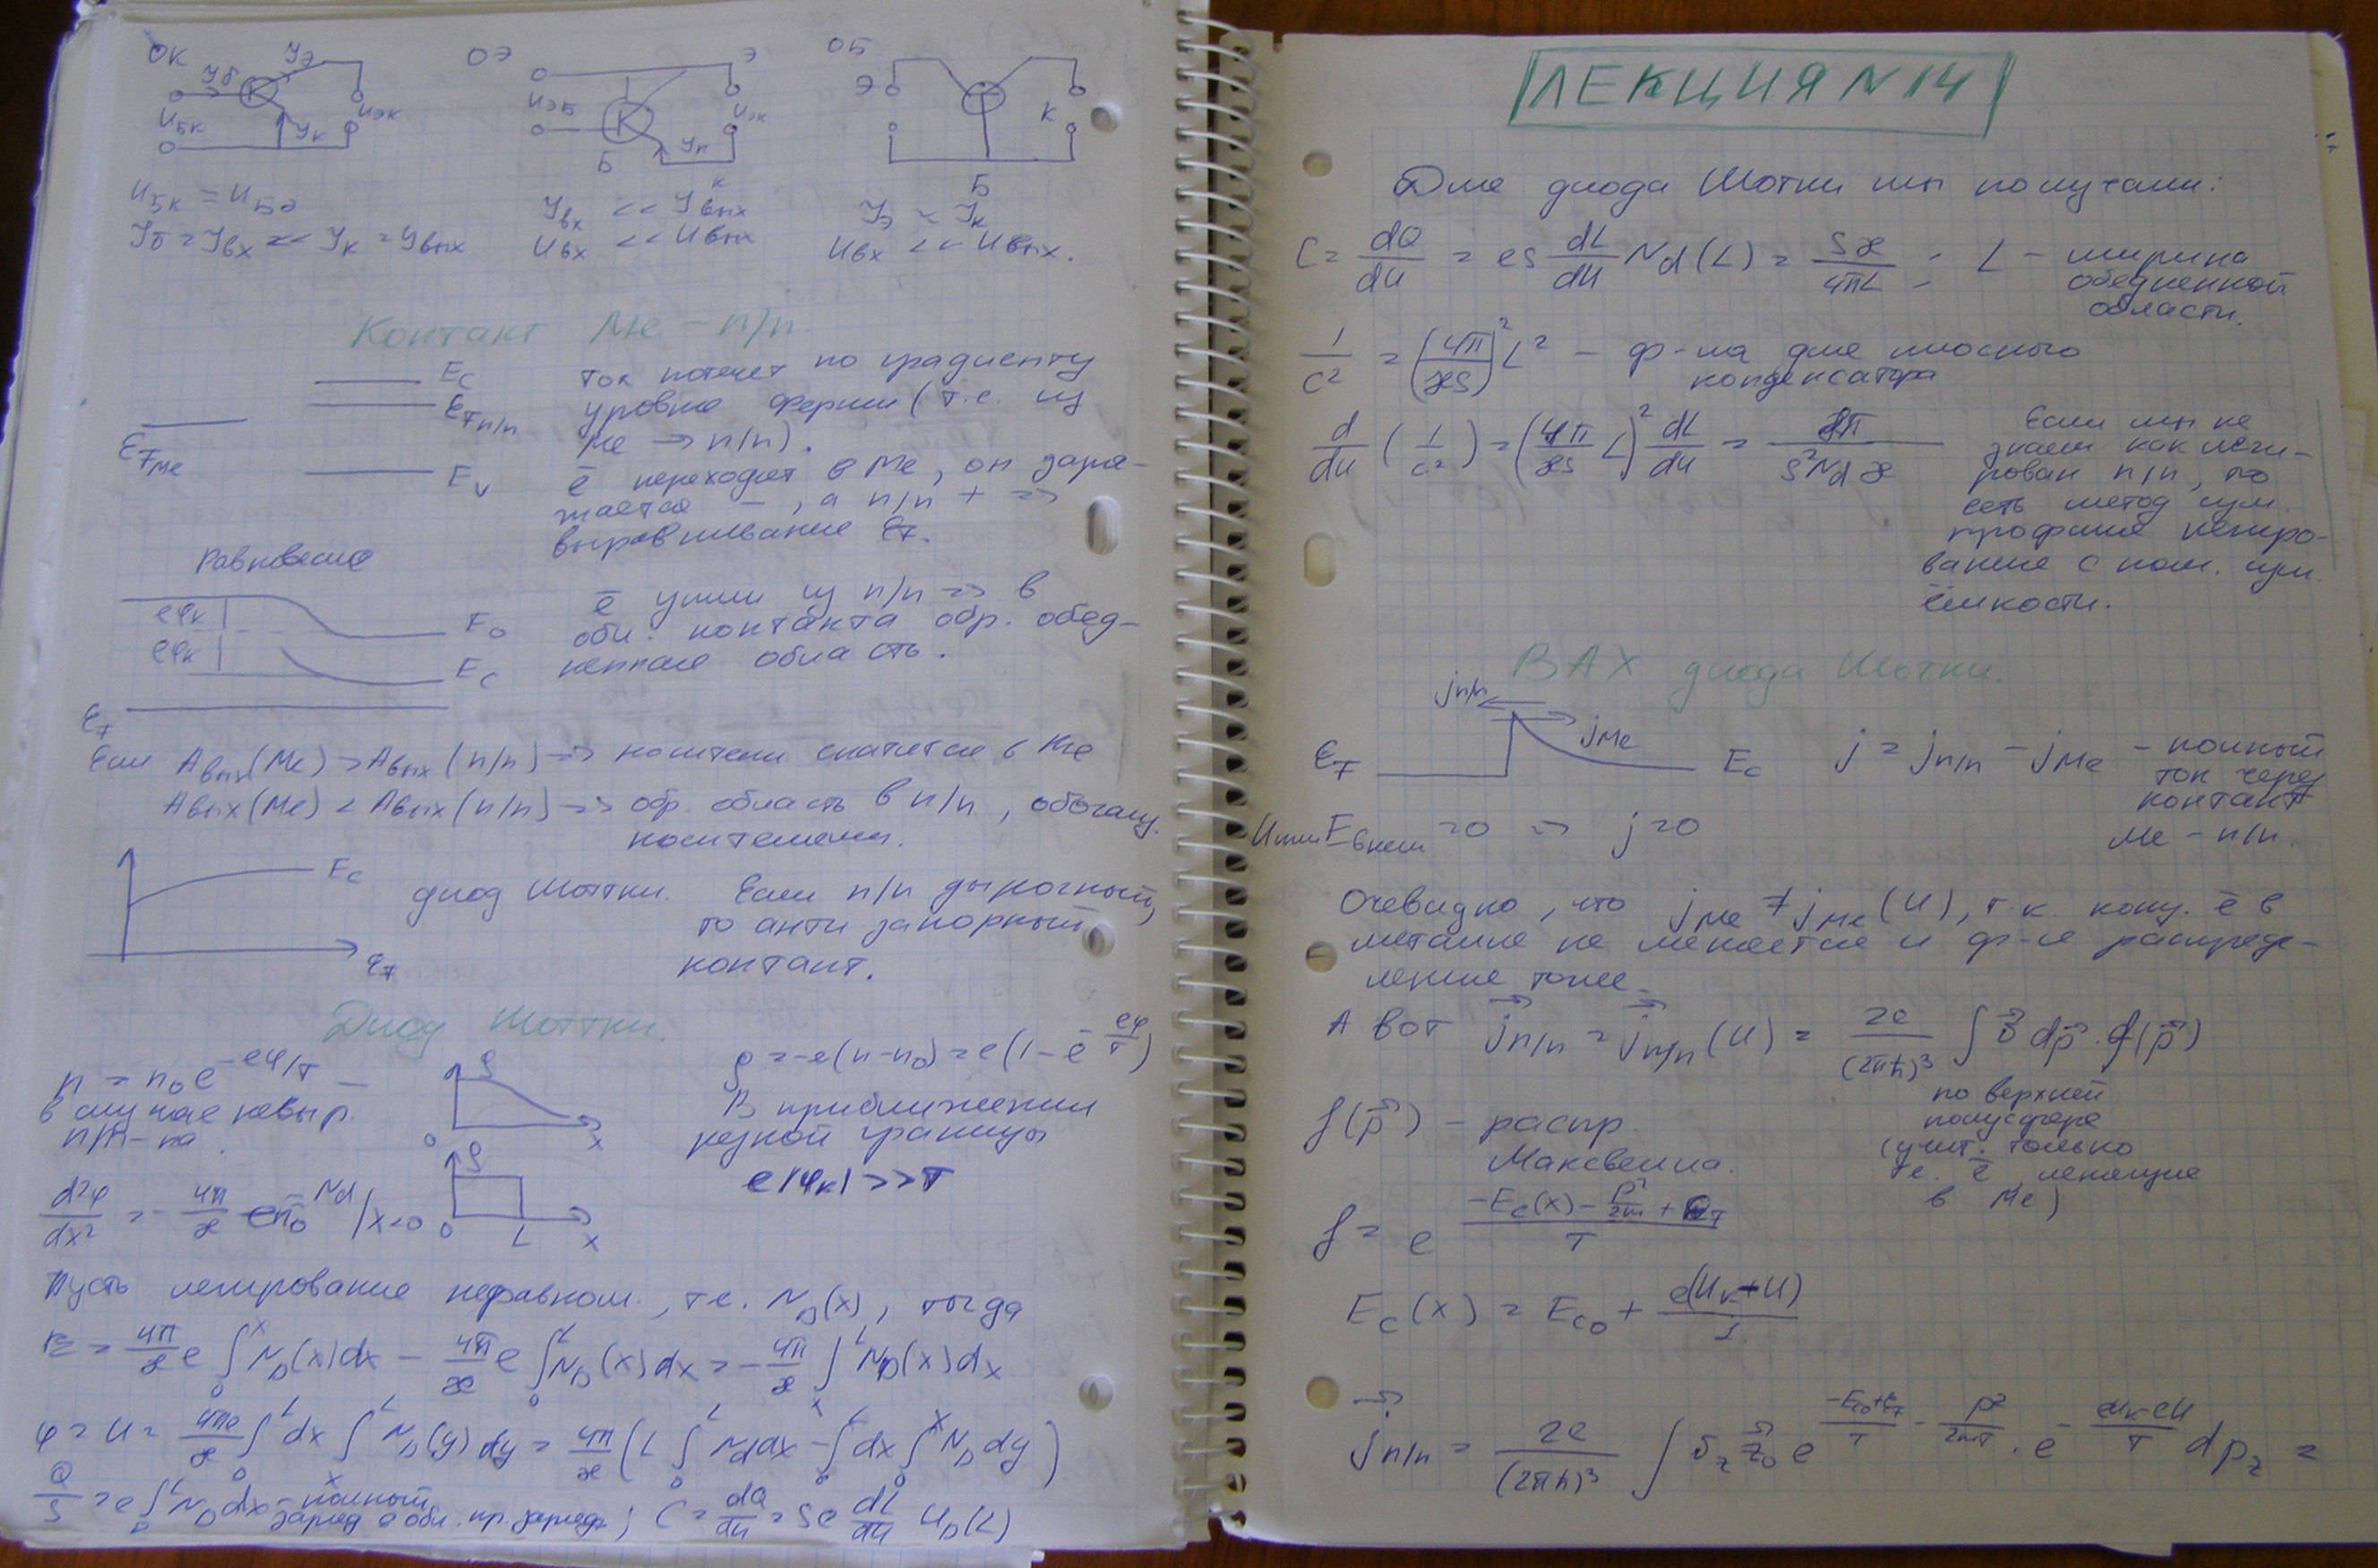 ОК
Jэ
Jб
UБК
UЭК
JК
UБК = UБЭ
Jб = Jвх << JК = Jвых
ОЭ
Э
UЭБ
UЭК
Б
К
Jвх << Jвых
Uвх << Uвых
ОБ
Э
К
Б
JЭ ~ JК
Uвх << Uвых.
Контакт Ме – п/п.
EC
EFп/п
EFМе
EV
ток потечет по градиенту
уровня Ферми (т.е. из
Ме → п/п).
ē переходят в Ме, он заря-
жается – , а п/п + =>
выравнивание EF.
Равновесие
eφк
eφк
EC
EF
ē ушли из п/п => в
обл. контакта обр. обед-
ненная область.
Если Aвых(Ме) > Aвых(п/п) => носители скатятся в Ме
Aвых(Ме) < Aвых(п/п) => обр. область в п/п, обогащ.
носителями.
EC
EF
диод Шоттки. Если п/п дырочный,
то анти запорный
контакт.
Диод Шоттки.
n = n0 e^(-eφ/T) –
в случае невыр.
п/п-ка.
ρ
0
x
ρ = -e(n-n0) = e(1 - e^(-eφ/T))
В приближении
резкой границы
e|φк| >> T
d²φ/dx² = - 4π/æ e n0 Nd |x=0
ρ
0 L x
Пусть легирование неравном., т.е. ND(x), тогда
E = 4π/æ e ∫0^x ND(x)dx – 4π/æ e ∫0^L ND(x)dx = - 4π/æ ∫x^L ND(x)dx
φ = U = 4πe/æ ∫0^L dx ∫x^L ND(y)dy = 4π/æ (L ∫0^L Nd dx - ∫0^L dx ∫0^x ND dy)
Q/S = e ∫0^L ND dx – полный
заряд в обл. пр. заряда; C = dQ/dU = Se dL/dU ND(L)
ЛЕКЦИЯ N14
Для диода Шотки мы получали:
C = dQ/dU = eS dL/dU Nd(L) = Sæ/4πL ; L – ширина
обедненной
области.
1/C² = (4π/æS)² L² – ф-ла для плоского
конденсатора
d/dU (1/C²) = (4π/æS L)² dL/dU = 8π/S²Nd æ
Если мы не
знаем как леги-
рован п/п, то
есть метод изм.
профиля легиро-
вания с пом. изм.
ёмкости.
ВАХ диода Шотки.
jп/п
jМе
EF
EC
j = jп/п – jМе – полный
ток через
контакт
Ме – п/п.
Eвнеш = 0 => j = 0
Очевидно, что jМе ≠ jМе(U), т.к. конц. ē в
металле не меняется и ф-я распреде-
ления тоже.
А вот jп/п = jп/п(U) = 2e/(2πħ)³ ∫ v dp · f(p)
по верхней
полусфере
(учит. только
те ē, летящие
в Ме)
f(p) – распр.
Максвелла.
f = e^((-EC(x) - p²/2m + EF)/T)
EC(x) = EC0 + e(Uк+U)/1
jп/п = 2e/(2πħ)³ ∫ vz z0 e^((-EC0+EF)/T - p²/2mT) · e^(-(eUк-eU)/T) dpz =